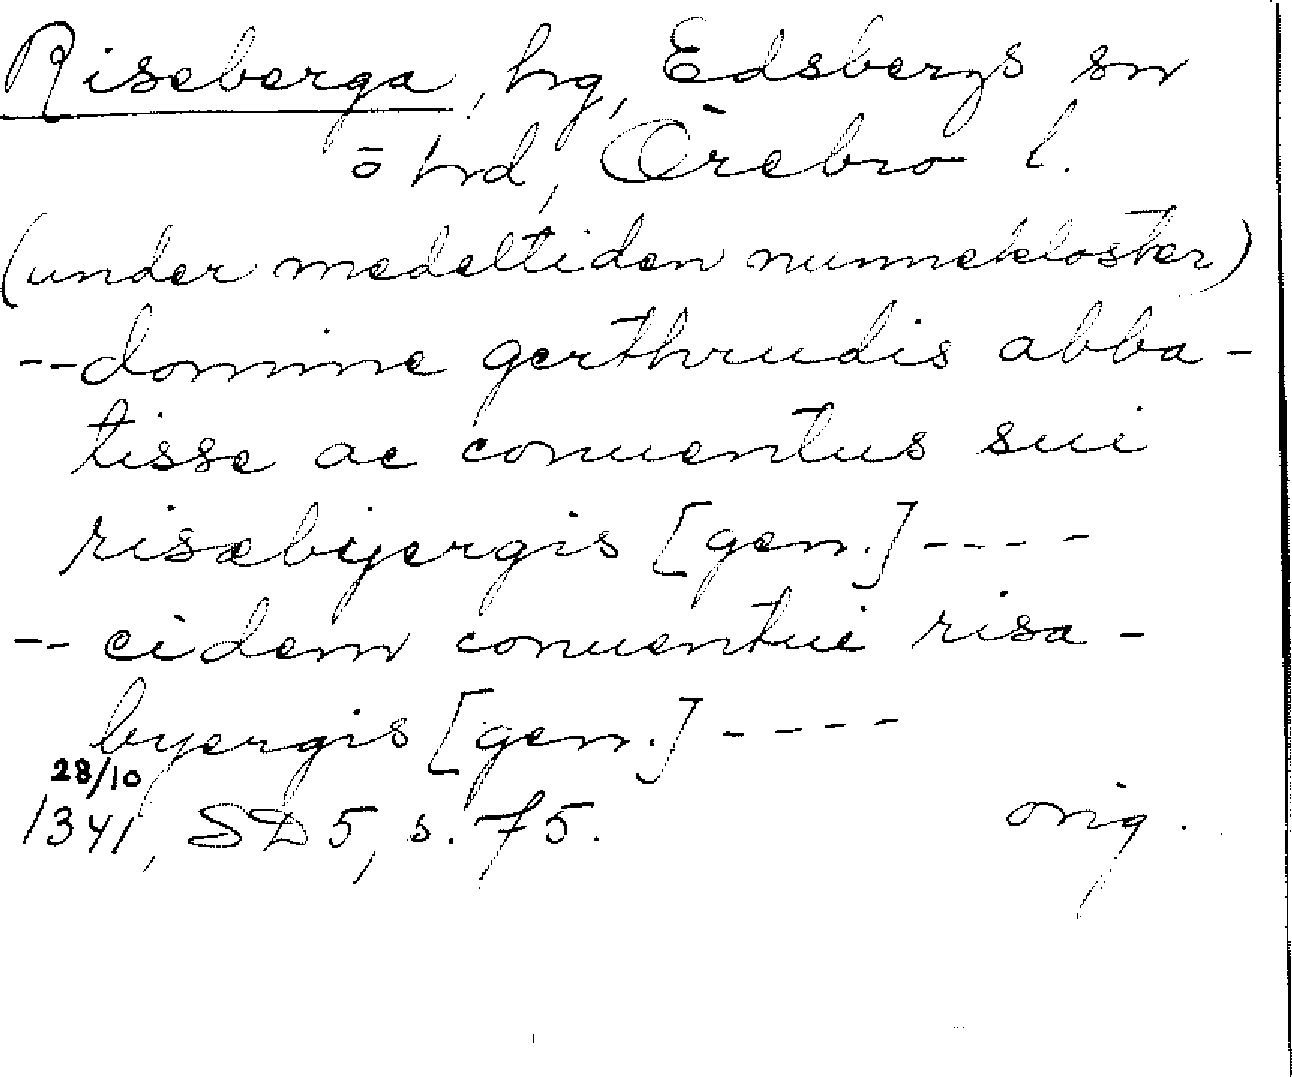 Riseberga, hg, Edsbergs sn
o hd, Örebro l.
(under medeltiden nunnekloster)
-- domine gerthrudis abba-
tisse ac conuentus sui
risæbyergis [gen.] ----
-- eidem conuentui risa-
byergis [gen.] ----
28/10
1341, SD 5, s. 75. orig.